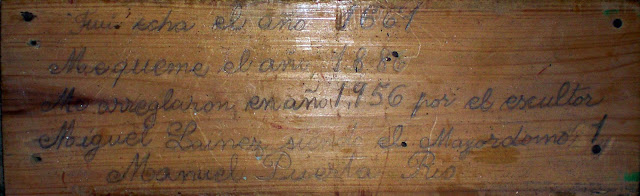 Fui echa el año 1861
Me queme el añ 1880
Me arreglaron en año 1956 por el escultor
Miguel Lainez siend el Mayordomo
Manuel Puerta Rio